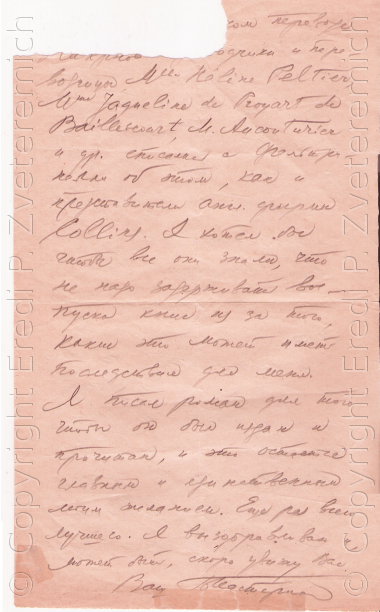 ом перевода
и пере
водчицы Mlle Hélène Peltier,
Mme Jaqueline de Proyart de
Baillescourt, M. Aucouturier
и др. списался с Фельтри-
нелли об этом, как и
представители англ. фирмы
Collins. Я хотел бы
чтобы все они знали, что
не надо задерживать вы-
пуска книги из за того,
какие это может иметь
последствия для меня.
Я писал роман для того
чтобы он был издан и
прочитан, и это остается
главным и единственным
моим желанием. Еще раз всего
лучшего. Я выздоравливаю и
может быть, скоро увижу Вас.
Ваш Б Пастернак
Copyright Eredi P. Zveteremich
Copyright Eredi P. Zveteremich
Copyright Eredi P. Zveteremich